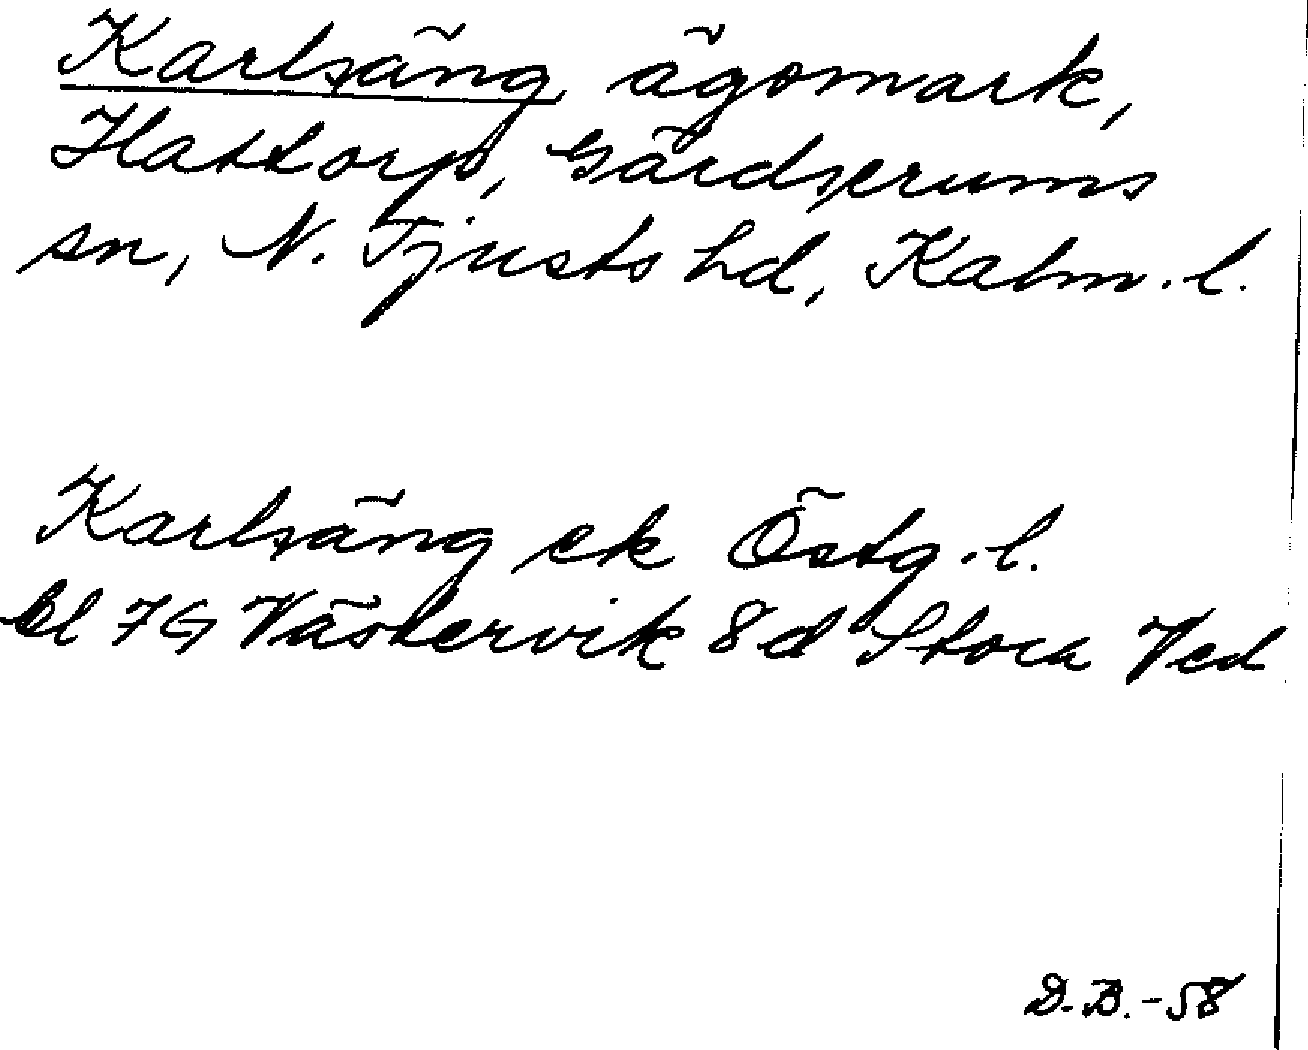 Karlsäng ägomark,
Hattorp, Gärdserums
sn, N. Tjusts hd, Kalm. l.
Karlsäng ek Östg. l.
bl 7G Västervik 8d Stora Ved
D.B. -58